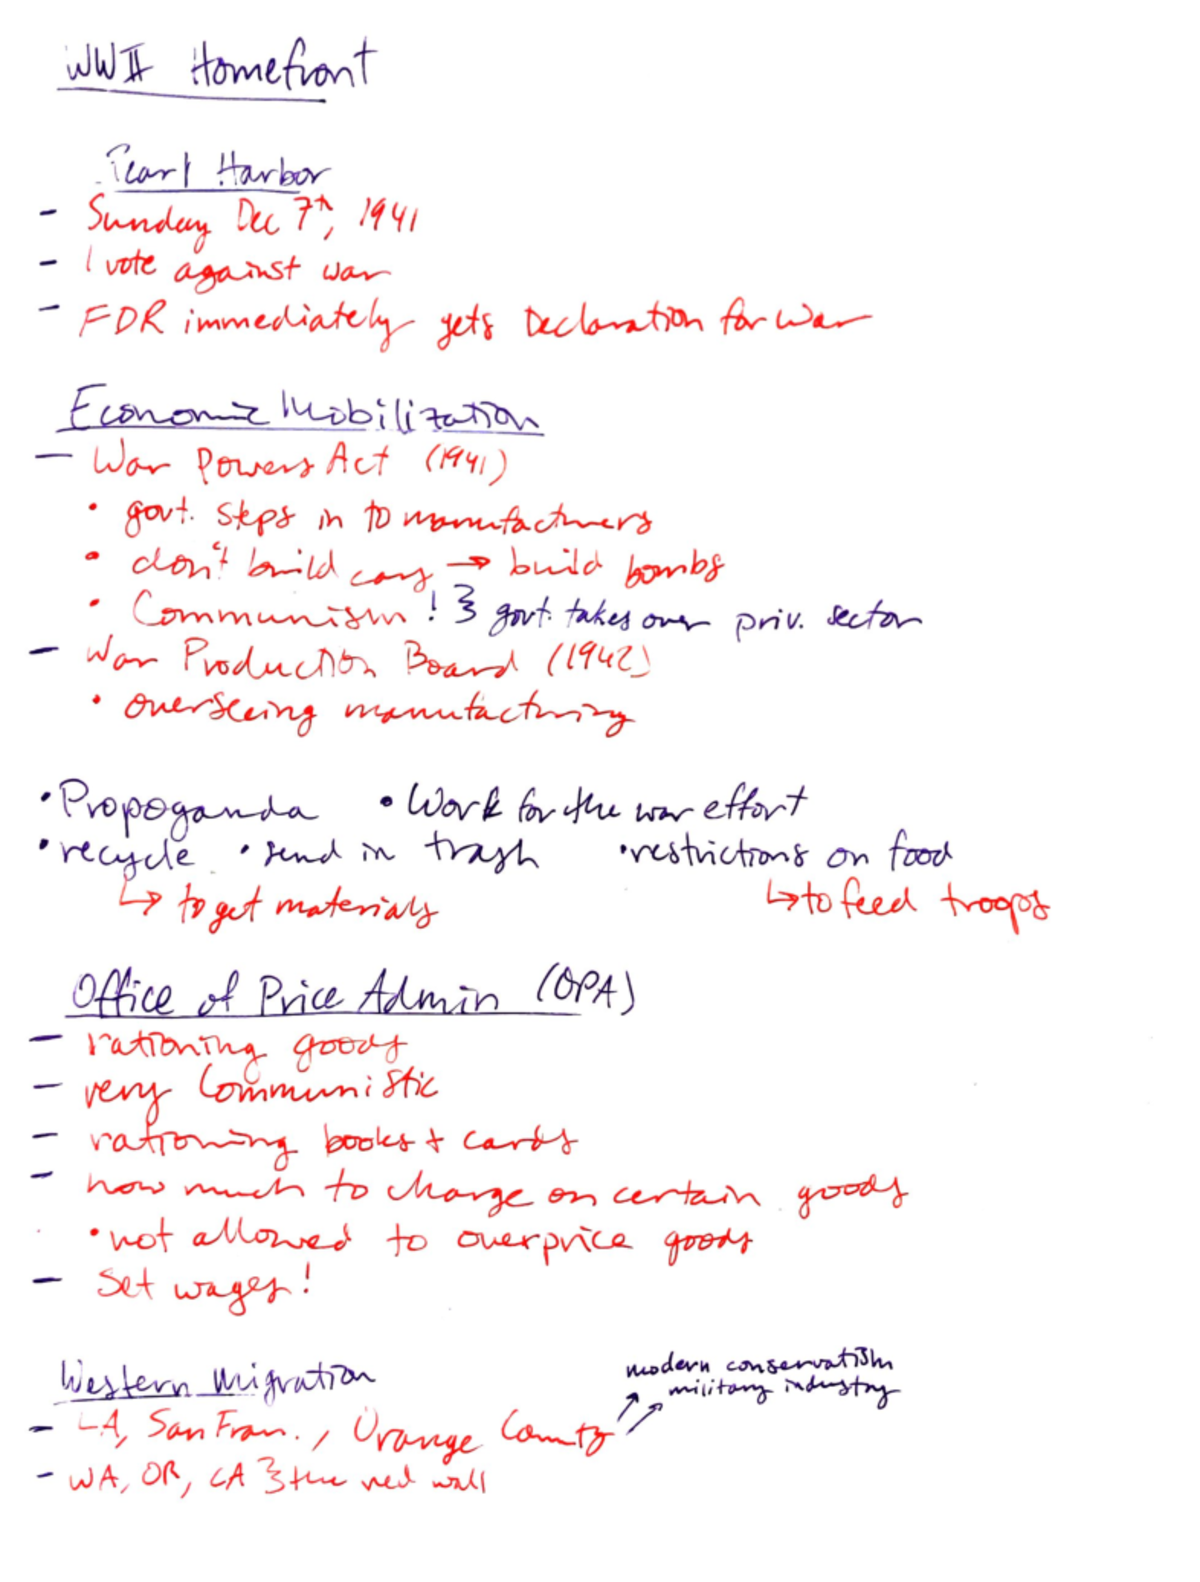 WWII Homefront
Pearl Harbor
- Sunday Dec 7th, 1941
- 1 vote against war
- FDR immediately gets Declaration for War
Economic Mobilization
- War Powers Act (1941)
• govt. steps in to manufacturers
• don't build cars → build bombs
• Communism! } govt. takes over priv. sector
- War Production Board (1942)
• overseeing manufacturing
• Propoganda • Work for the war effort
• recycle • send in trash • restrictions on food
↳ to get materials ↳ to feed troops
Office of Price Admin (OPA)
- rationing goods
- very Communistic
- rationing books + cards
- how much to charge on certain goods
• not allowed to overprice goods
- Set wages!
Western Migration
modern conservatism
military industry
- LA, San Fran., Orange County ↗↗
- WA, OR, CA } the red wall